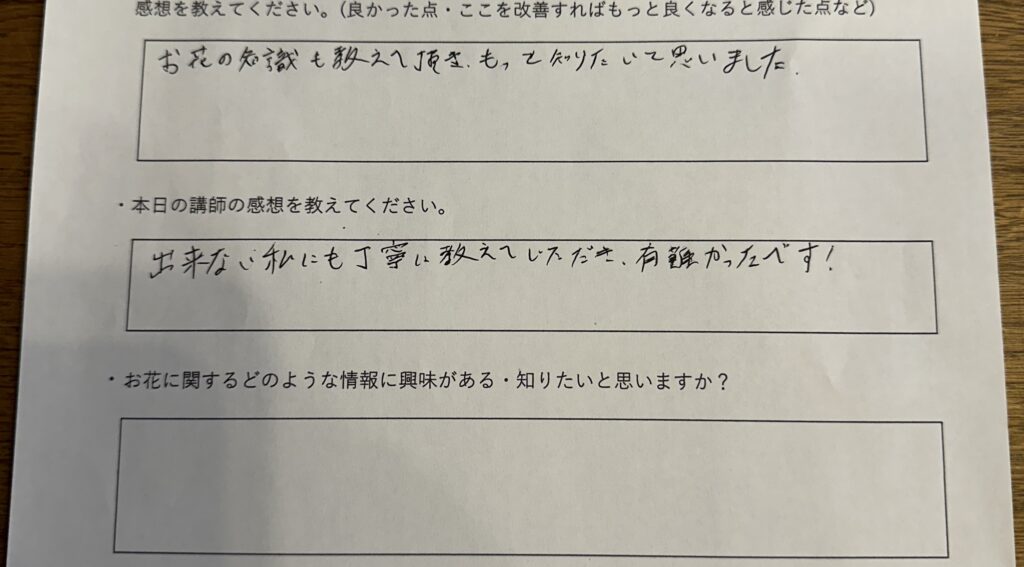 感想を教えてください。(良かった点・ここを改善すればもっと良くなると感じた点など)
お花の知識も教えて頂き、もっと知りたいて思いました.
・本日の講師の感想を教えてください。
出来ない私にも丁寧に教えていただき、有難かったです!
・お花に関するどのような情報に興味がある・知りたいと思いますか?